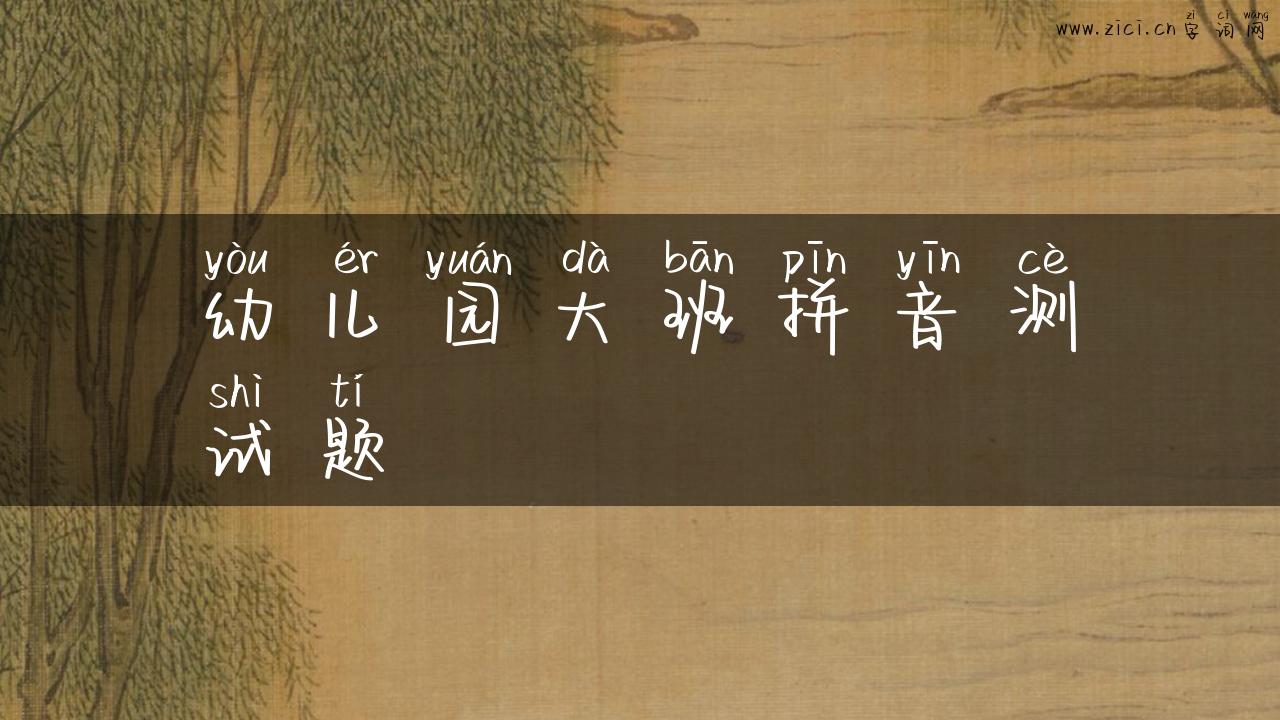 zì cí wǎng
www.zici.cn 字词网
yòu ér yuán dà bān pīn yīn cè
幼儿园大班拼音测
shì tí
试题